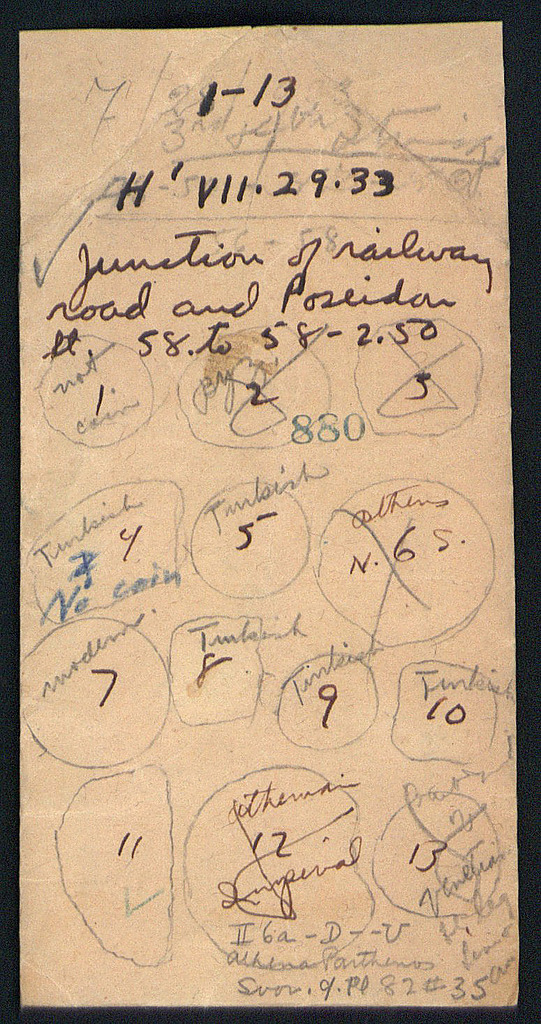 7
1-13
3rd + 4th
H' VII.29.33
Junction of railway
road and Poseidon
st. 58. to 58-2.50
not
1
coin
2
3
880
Turkish
4
No coin
Turkish
5
Athens
N. 6 S.
modern.
7
Turkish
8
Turkish
9
Turkish
10
11
Athenian
12
Imperial
13
Venetian
II 6a - D--U
Athena Parthenos
Svor. 9. Pl 82 # 35